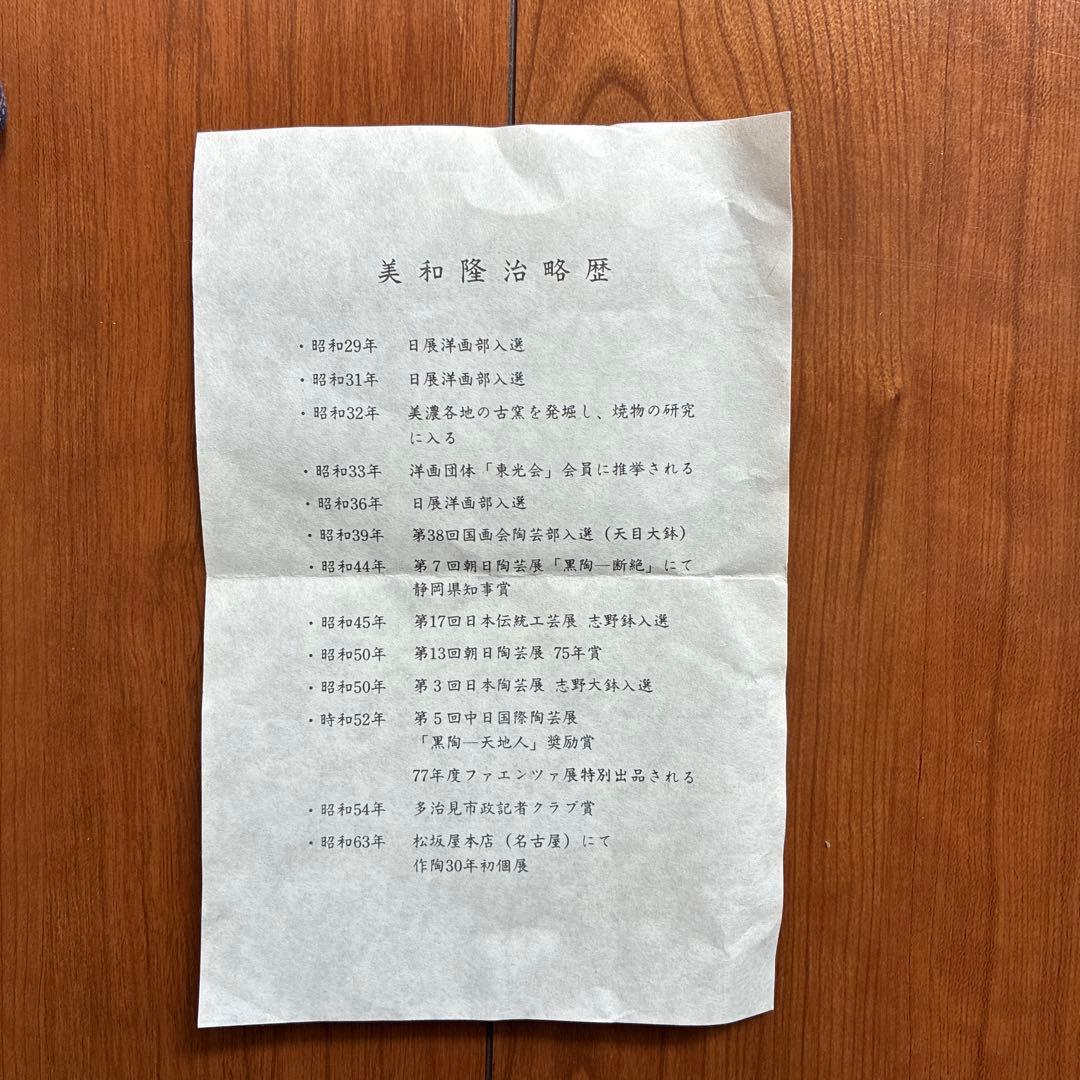 美和隆治略歴
・昭和29年 日展洋画部入選
・昭和31年 日展洋画部入選
・昭和32年 美濃各地の古窯を発掘し、焼物の研究
に入る
・昭和33年 洋画団体「東光会」会員に推挙される
・昭和36年 日展洋画部入選
・昭和39年 第38回国画会陶芸部入選（天目大鉢）
・昭和44年 第7回朝日陶芸展「黒陶―断絶」にて
静岡県知事賞
・昭和45年 第17回日本伝統工芸展 志野鉢入選
・昭和50年 第13回朝日陶芸展 75年賞
・昭和50年 第3回日本陶芸展 志野大鉢入選
・時和52年 第5回中日国際陶芸展
「黒陶―天地人」奨励賞
77年度ファエンツァ展特別出品される
・昭和54年 多治見市政記者クラブ賞
・昭和63年 松坂屋本店（名古屋）にて
作陶30年初個展